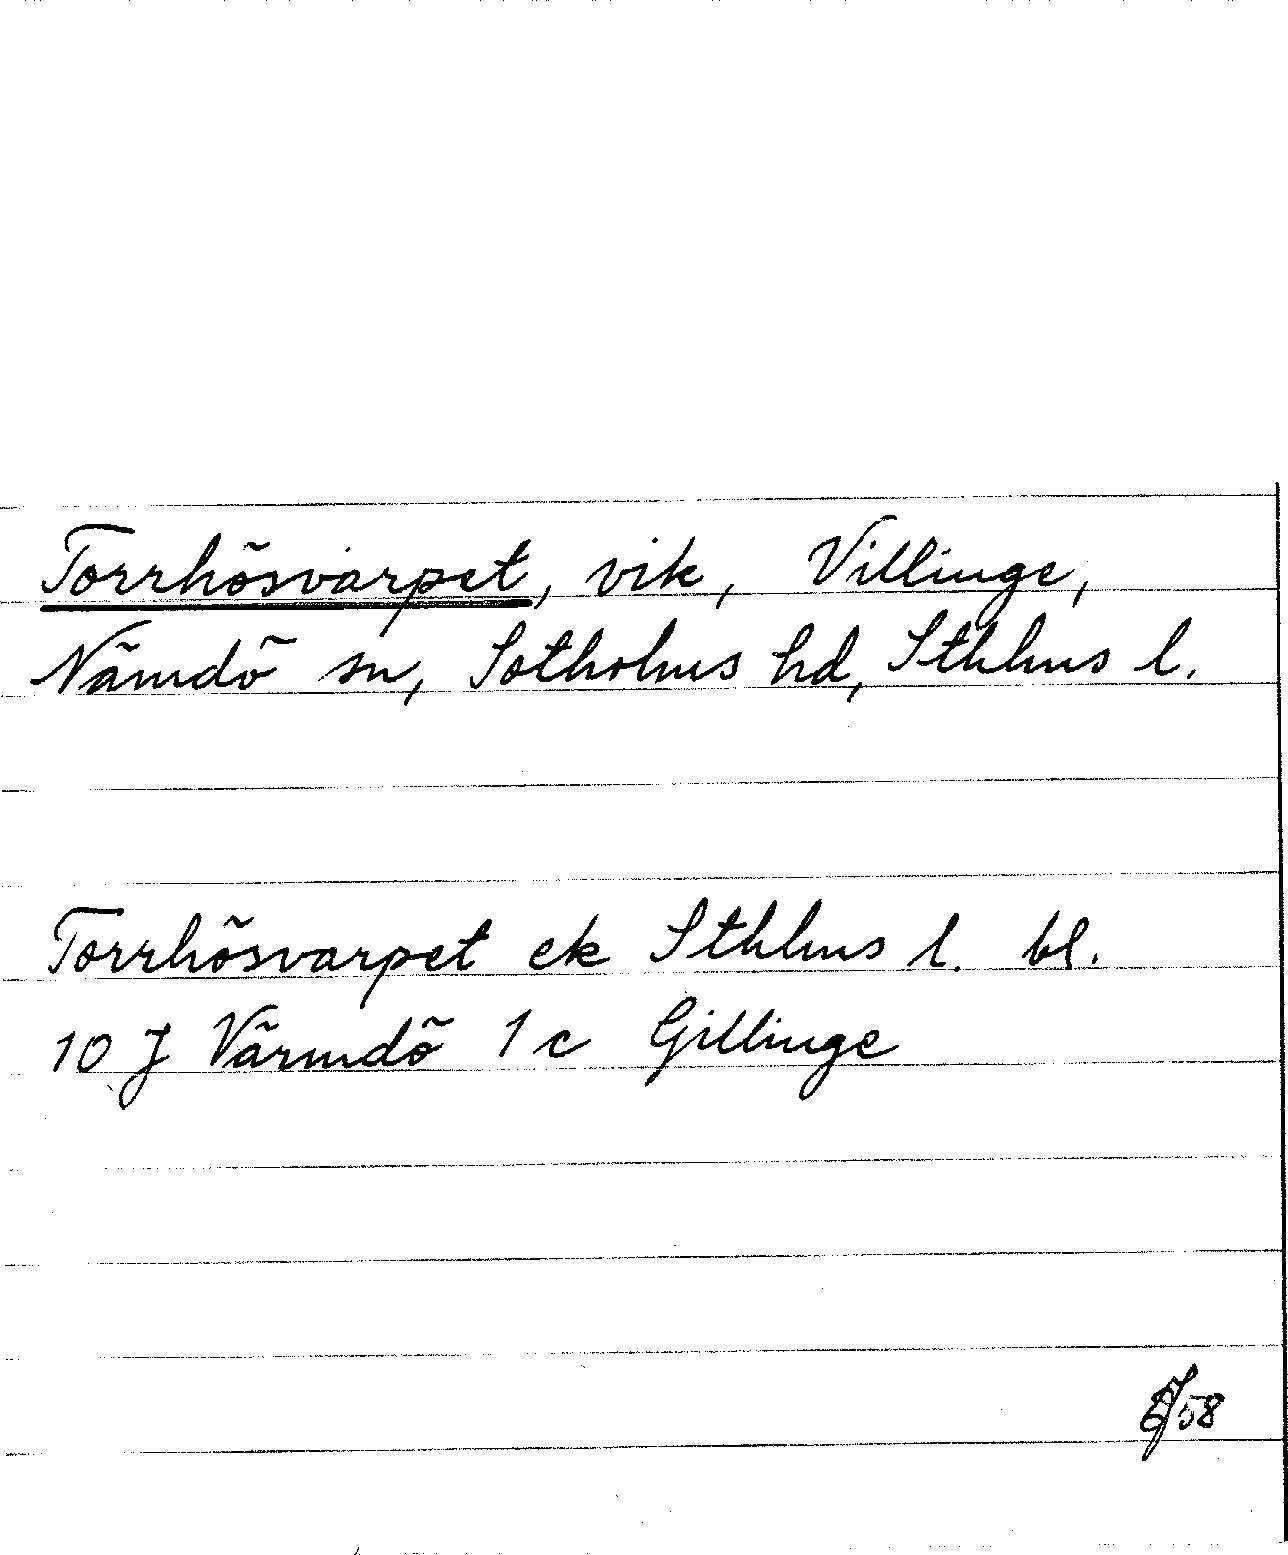 Torrhösvarpet, vik, Villinge,
Nämdö sn, Sotholms hd, Sthlms l.
Torrhösvarpet ek Sthlms l. bl.
10 J Värmdö 1 c Gillinge
58